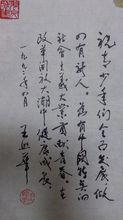 祝青少年们全面发展做
四有新人、为有中国特色的
社会主义大业贡献青春在
改革开放大潮中健康成长
一九九 年 月
王照華